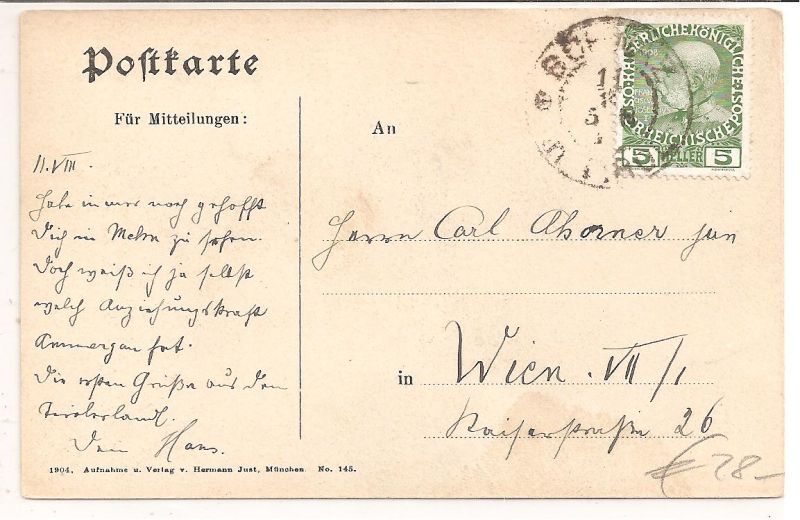 Postkarte
Für Mitteilungen:
An
11.VIII.
Habe immer noch gehofft
Dich in Mehrn zu sehen.
Doch weiß ich ja selbst
welch Anziehungskraft
Ammergau hat.
Die ersten Grüße aus dem
Tirolerland.
Dein Hans.
Herrn Carl Ahorner jun
in Wien. VII/1
Kaiserstraße 26
€ 28-
KAISERLICHE KÖNIGLICHE
ÖSTERREICHISCHE POST
5 HELLER 5
1904. Aufnahme u. Verlag v. Hermann Just, München. No. 145.